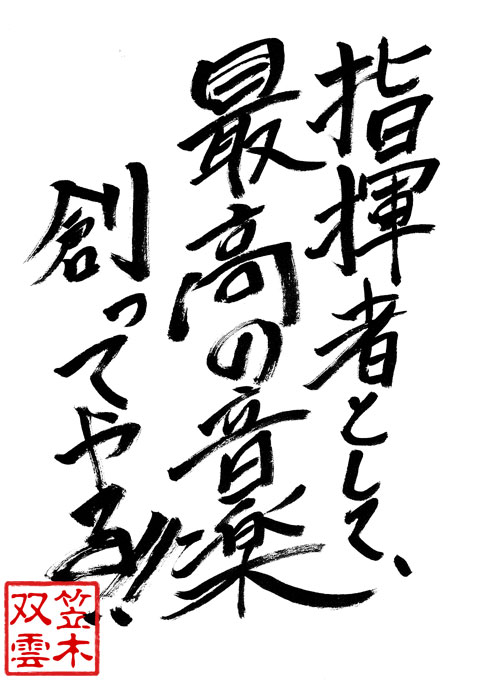 指揮者として、
最高の音楽
創ってやる!!
笠木
双雲